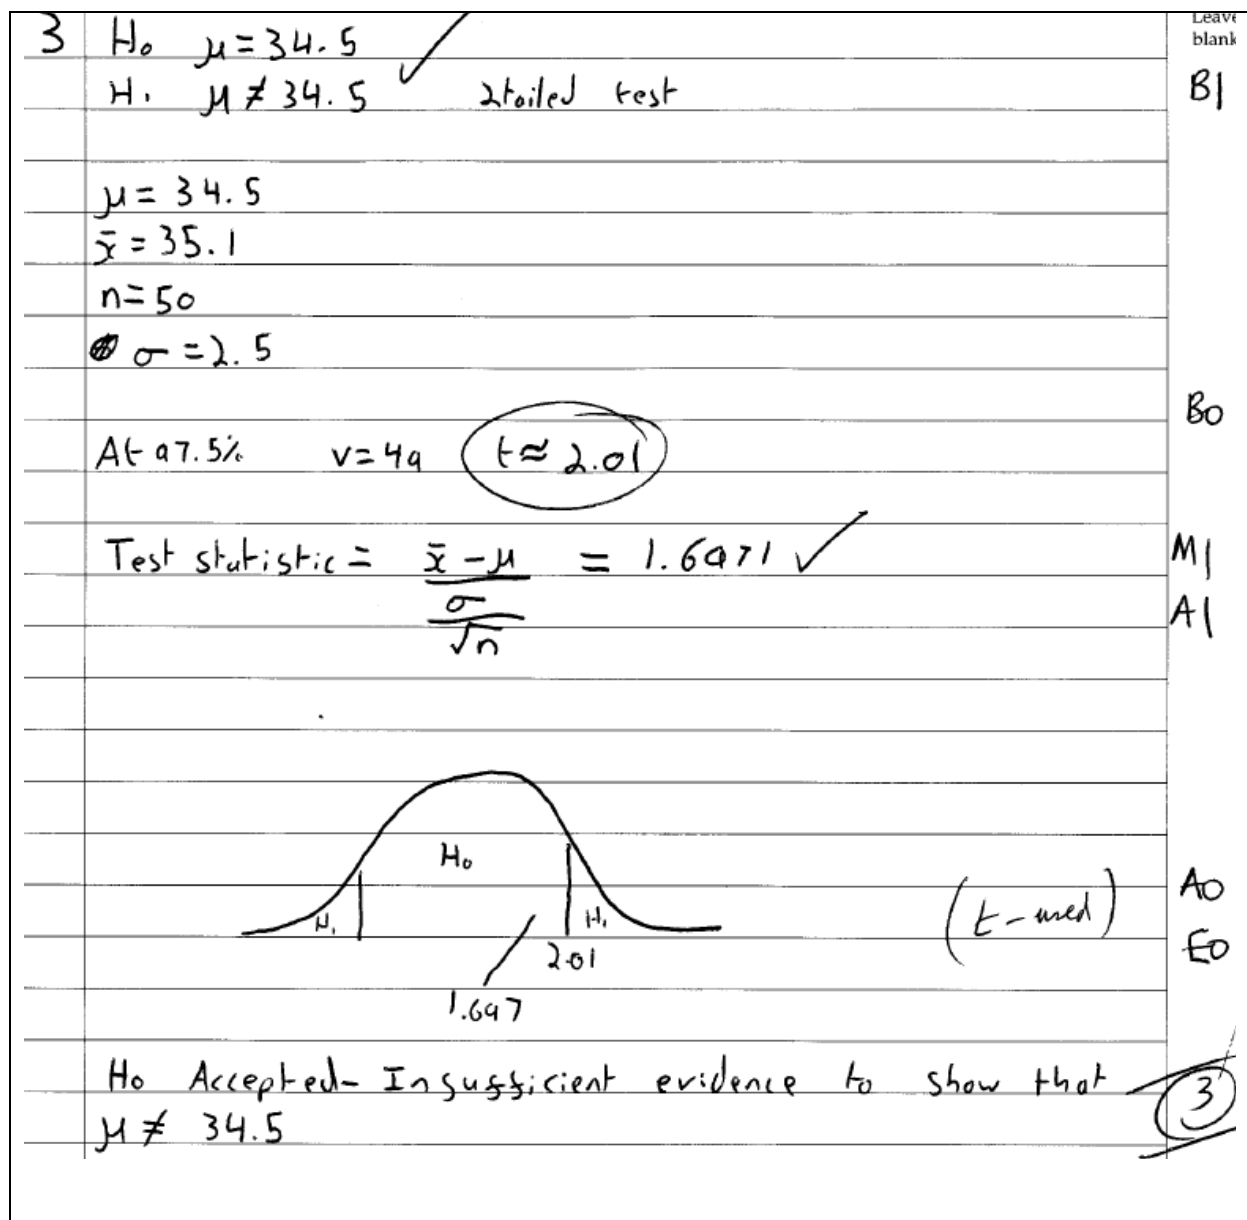 Leave
blank
3 H₀ μ = 34.5
H₁ μ ≠ 34.5 2tailed test B1
μ = 34.5
x̄ = 35.1
n = 50
σ = 2.5
B0
At 97.5% v = 49 t ≈ 2.01
Test statistic = x̄ - μ = 1.6971 ✓ M1
σ A1
√n
H₀
A0
H₁ H₁ (t-used)
2.01 E0
1.697
H₀ Accepted - Insufficient evidence to show that 3
μ ≠ 34.5